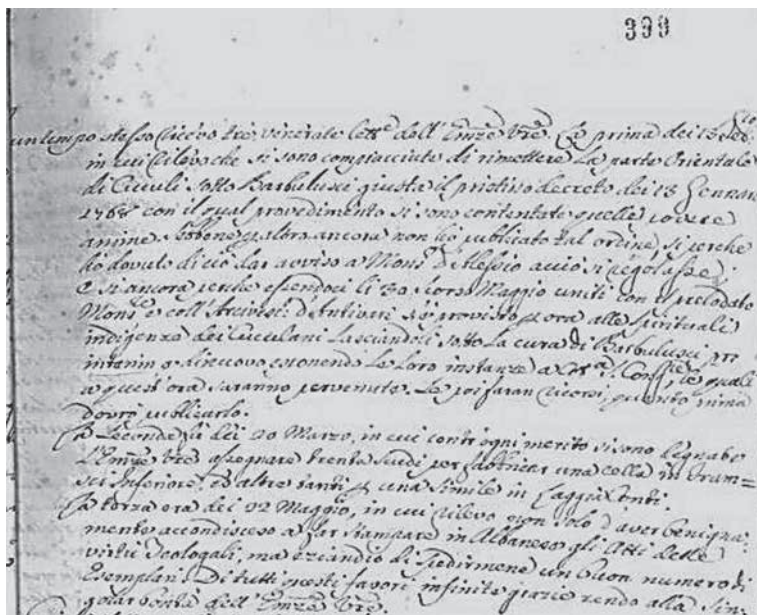 399
un tempo stesso ricevo tre venerate lett.e dell'Emze Vre. La prima dei 13 Feb.
in cui rilevo che si sono compiacciute di rimettere la parte Orientale
di Cuculi sotto Barbulusci giusta il pristino decreto dei 13 Gennaro
1768 con il qual provedimento si sono contentate quelle povere
anime. Sebbene altro ancora non hò publicato tal ordine, si perche
hò dovuto di ciò dar avviso a Mons. d'Alessio acciò si regolasse;
e si ancora perche essendoci li 30 scorso Maggio uniti con il prelodato
Mons.e e coll'Arcivesc. d'Antivari si è provisto p ora alle spirituali
indigenze dei Cuculani lasciandoli sotto la cura di Barbulusci pro
interim e di nuovo esponendo le loro instanze a cot.a S. Cong.e, le quali
a quest'ora saranno pervenute. Se poi faran ricorso, quanto prima
dovrò publicarlo.
La seconda dei 20 Marzo, in cui contr'ogni merito si sono degnate
l'Emze Vre assegnare trenta scudi per fabbricar una cella in Tram=
sci Inferiore, ed altre tanti p una simile in
La terza era dei 22 Maggio, in cui rilevo non solo d'aver benigna:
mente accondisceso a far stampare in Albanese gli Atti delle
virtù Teologali, ma eziandio di spedirmene un buon numero di
Esemplari. Di tutti questi favori infinite grazie rendo alla sin:
golar bontà dell'Emze Vre.